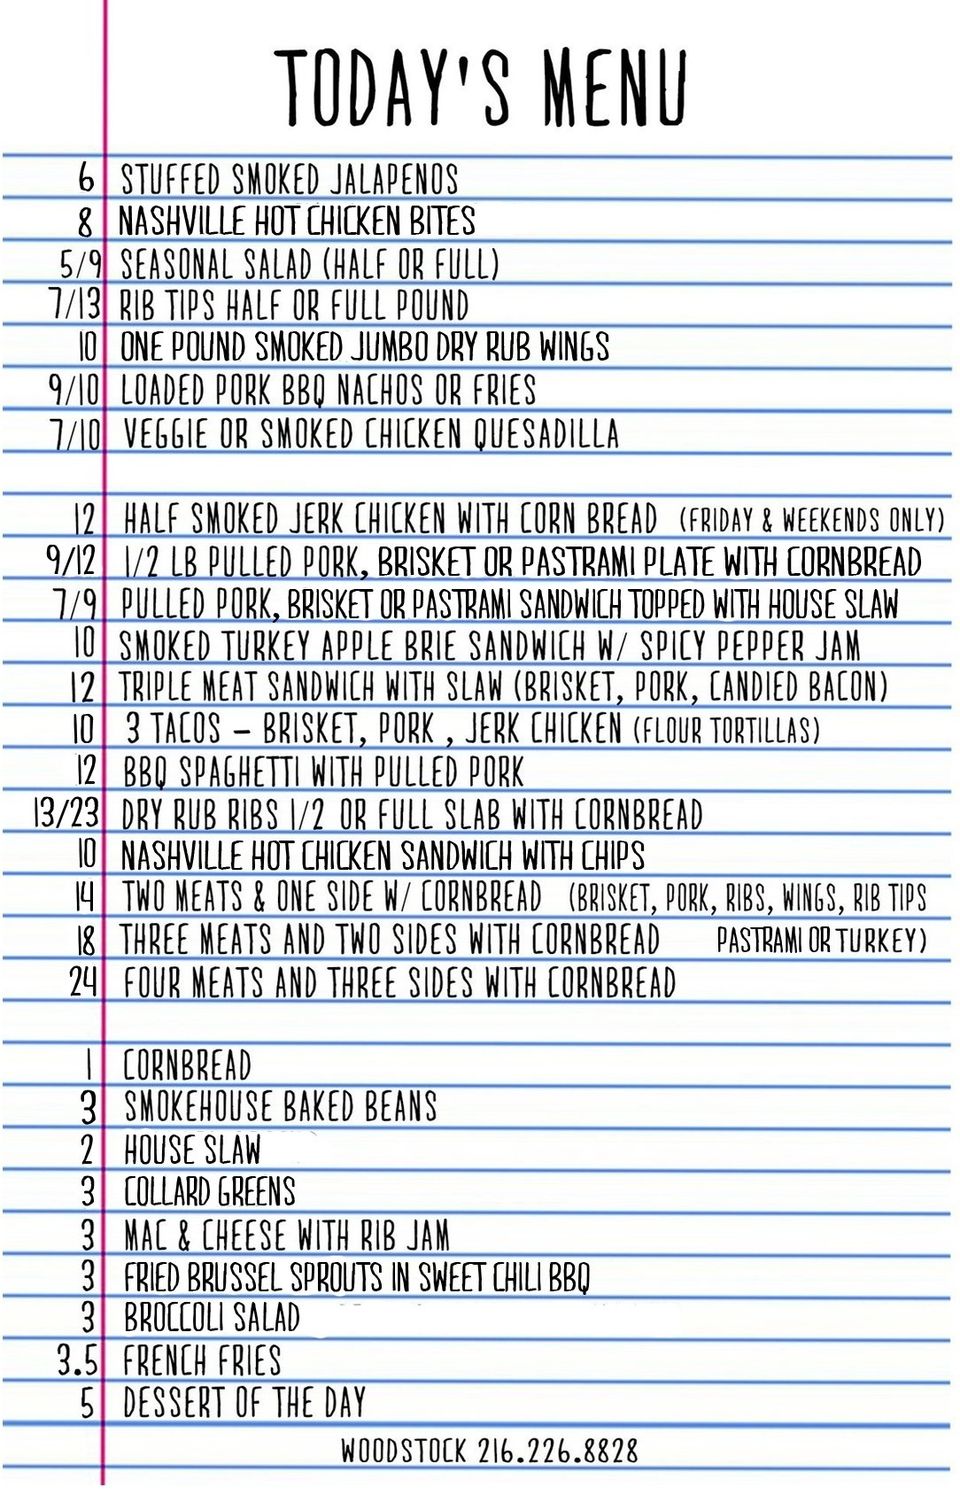 TODAY'S MENU
6 STUFFED SMOKED JALAPENOS
8 NASHVILLE HOT CHICKEN BITES
5/9 SEASONAL SALAD (HALF OR FULL)
7/13 RIB TIPS HALF OR FULL POUND
10 ONE POUND SMOKED JUMBO DRY RUB WINGS
9/10 LOADED PORK BBQ NACHOS OR FRIES
7/10 VEGGIE OR SMOKED CHICKEN QUESADILLA
12 HALF SMOKED JERK CHICKEN WITH CORN BREAD (FRIDAY & WEEKENDS ONLY)
9/12 1/2 LB PULLED PORK, BRISKET OR PASTRAMI PLATE WITH CORNBREAD
7/9 PULLED PORK, BRISKET OR PASTRAMI SANDWICH TOPPED WITH HOUSE SLAW
10 SMOKED TURKEY APPLE BRIE SANDWICH W/ SPICY PEPPER JAM
12 TRIPLE MEAT SANDWICH WITH SLAW (BRISKET, PORK, CANDIED BACON)
10 3 TACOS - BRISKET, PORK , JERK CHICKEN (FLOUR TORTILLAS)
12 BBQ SPAGHETTI WITH PULLED PORK
13/23 DRY RUB RIBS 1/2 OR FULL SLAB WITH CORNBREAD
10 NASHVILLE HOT CHICKEN SANDWICH WITH CHIPS
14 TWO MEATS & ONE SIDE W/ CORNBREAD (BRISKET, PORK, RIBS, WINGS, RIB TIPS
18 THREE MEATS AND TWO SIDES WITH CORNBREAD PASTRAMI OR TURKEY)
24 FOUR MEATS AND THREE SIDES WITH CORNBREAD
1 CORNBREAD
3 SMOKEHOUSE BAKED BEANS
2 HOUSE SLAW
3 COLLARD GREENS
3 MAC & CHEESE WITH RIB JAM
3 FRIED BRUSSEL SPROUTS IN SWEET CHILI BBQ
3 BROCCOLI SALAD
3.5 FRENCH FRIES
5 DESSERT OF THE DAY
WOODSTOCK 216.226.8828